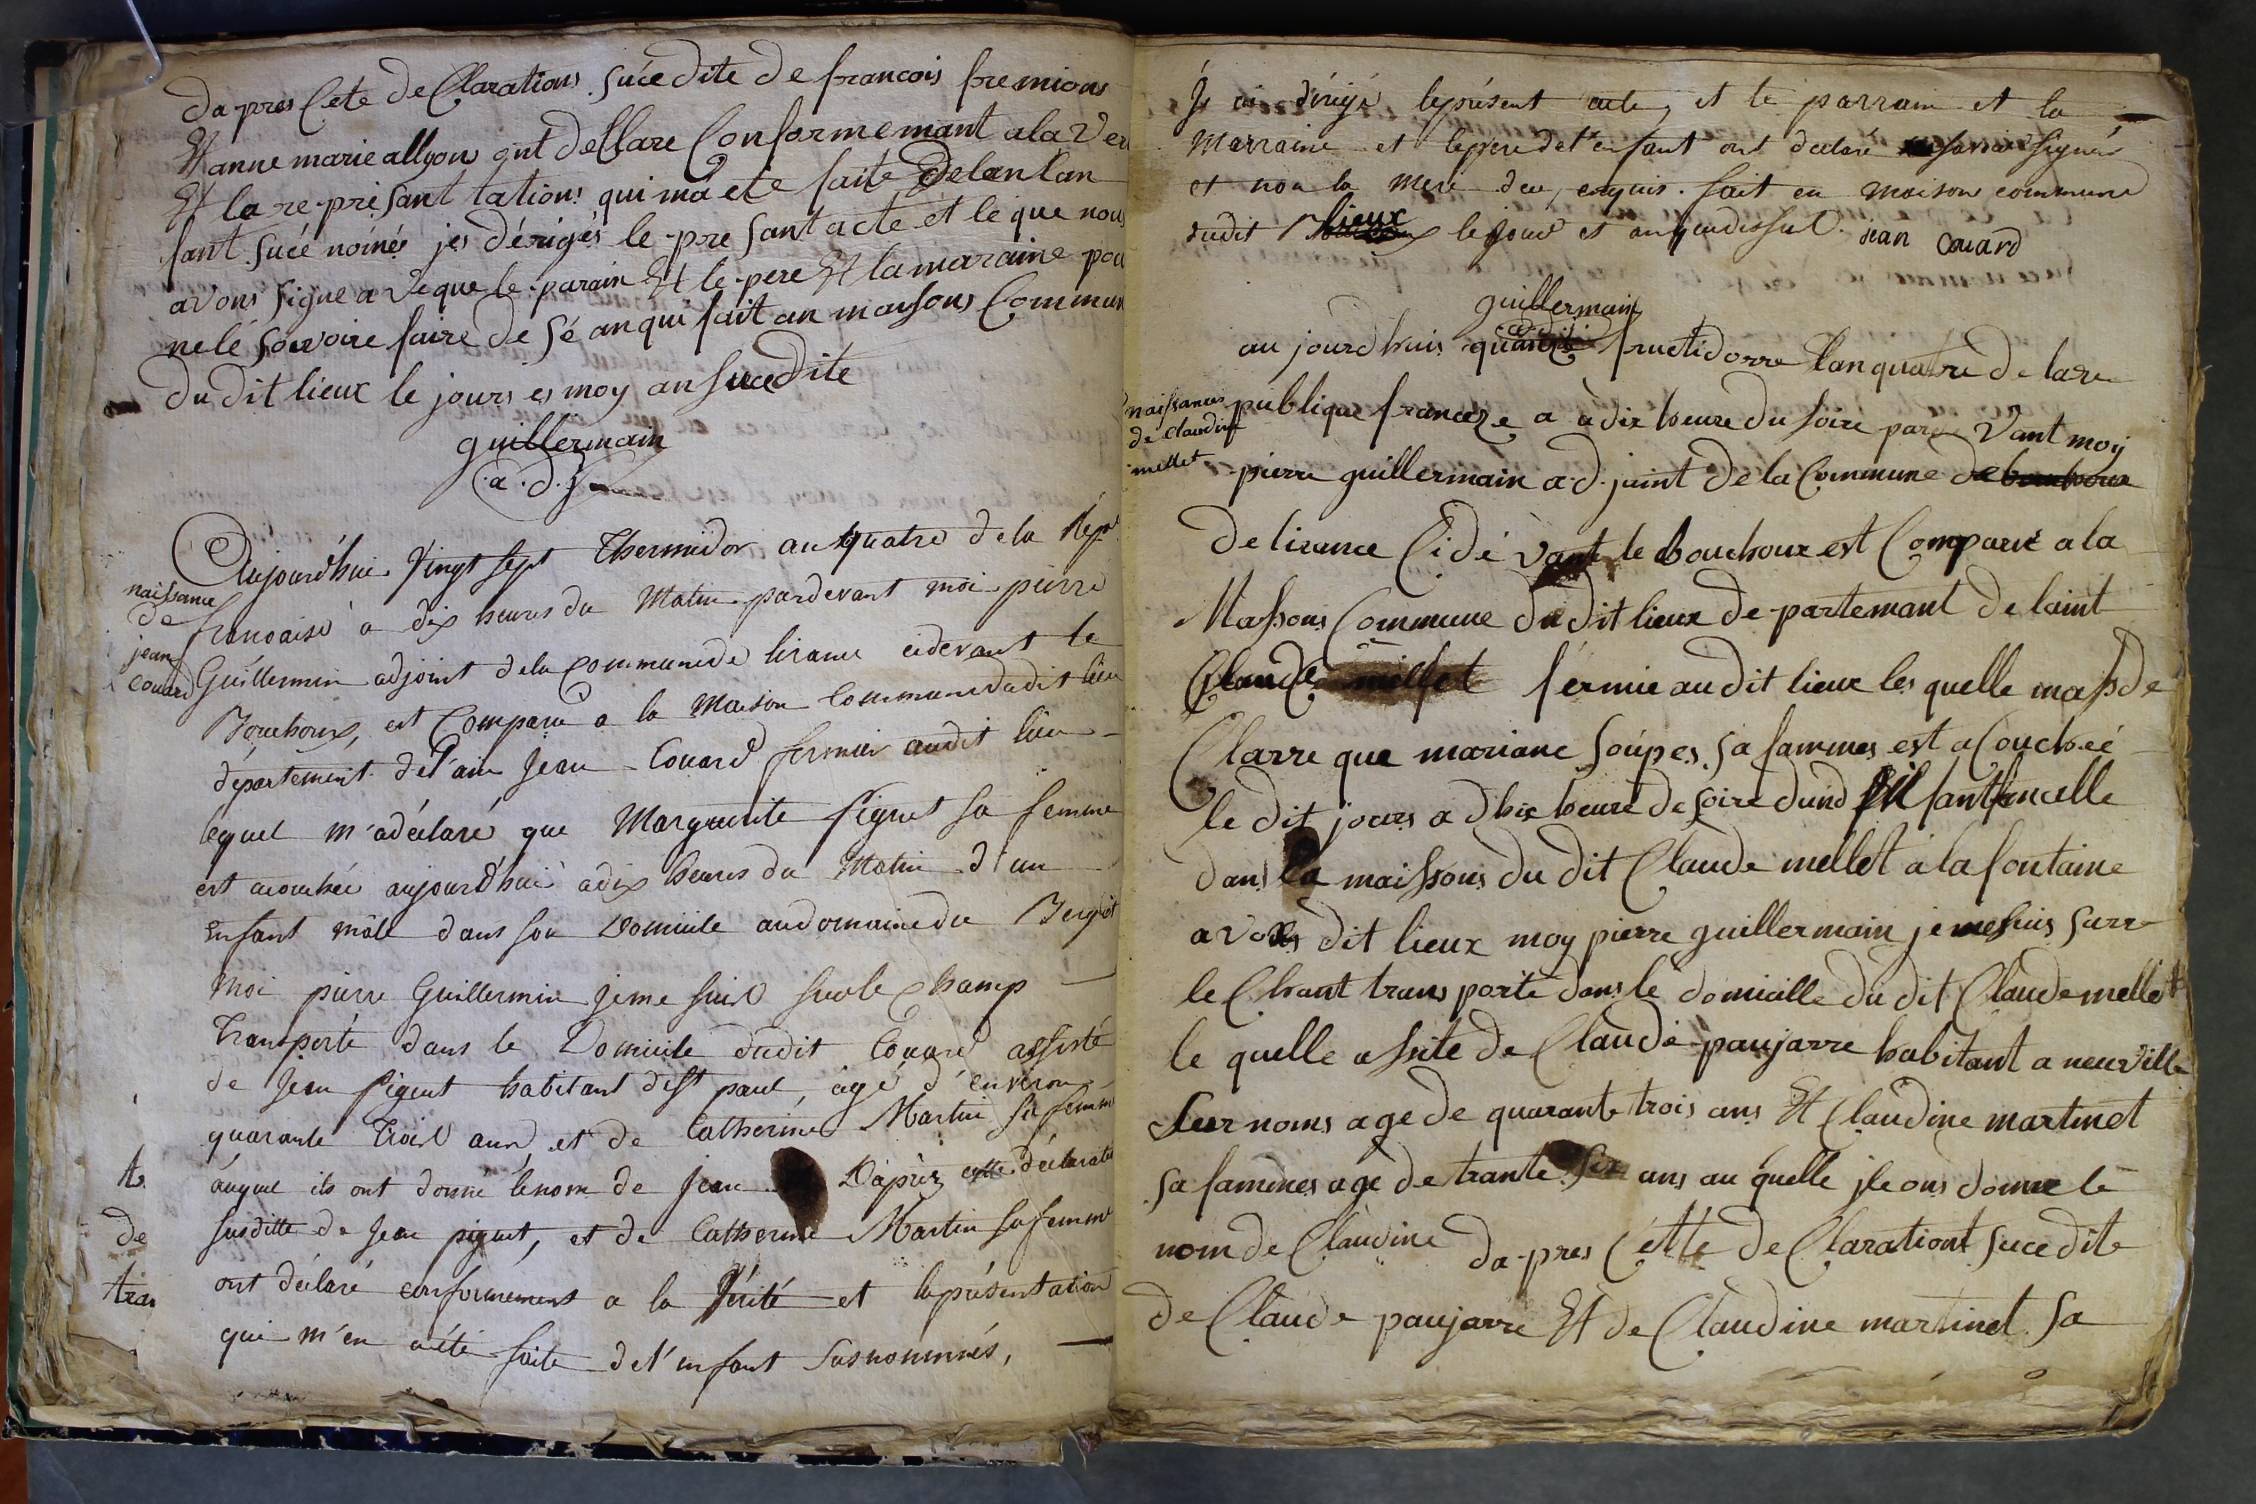 da pres Cete de Clarations Sucedite de francois fremions
Et anne marie allyon ont deClare Conformemant ala Ver
Et la re-presant tations qui ma ete faite De lan lan
fant Sucé noinés jes dérigés le-pre sant acte et le que nous
avons Signe aveque le-parain Et le-pere Et la maraine pou
ne lé Savoire faire de Sé anqui fait an maisons Commun
du dit lieux le jours es moy an Sucedite
guillermain
a.d.j
Aujourd'hui Vingt Sept Thermidor an quatre de la Répe
naissance
de
jean
Couard
française à dix heures du Matin pardevant moi pierre
Guillermin adjoint de la Commune de lirance cidevant le
Bouchoux, est Comparu a la Maison Commune dudit lieu
département de l'ain Jean Couard fermier audit lieu
lequel m'a déclaré que Marguerite Piguet sa femme
est acouchée aujourd'hui a dix heures du Matin d'un
Enfant mâle dans son Domicile au domaine du
Moi pierre Guillermin je me suis sur le Champ
Transporté dans le Domicile dudit Couard assisté
de Jean Piguet habitant de St paul, âgé d'environ
quarante Trois ans, et de Catherine Martin sa femme
auquel ils ont donné le nom de Jean D'après cette déclaration
Susditte de Jean piguet, et de Catherine Martin sa femme
ont déclaré conformément a la Vérité et la présentation
qui m'en a été faite de l'enfant Susnommés,
A
de
tra
J'ai dirigé le présent acte, et le parrain et la
Marraine et le père de l'enfant ont déclaré savoir signer
et non la Mere de ce, enquis. fait en Maison commune
dudit lieux le jour et an que dessus. jean Couard
guillermain
a.d.j
au jourdhuis quandzé fructidorre lan quatre de lare
naissances
de Claudine
mellet
publique franceze a à dix heure du Soire par Vant moy
pierre guillermain a.d.joint de la Commune de bouchoux
de lirance Cidé vant le bouchoux est Comparue a la
Massons Commune du dit lieux de-partemant de laint
Claude mellet fermie au dit lieux les quelle mas de
Clarre que mariane Soupes Sa fammes est acouchéé
le dit jours a dhix heure de Soire dund fantfemelle
dans la maissons du dit Claude mellet a la fontaine
a vous dit lieux moy pierre guillermain je me suis surr
le Chant trans porté dans le domicille du dit Claude mellet
le quelle asite de Claude paujarre habitant a neuville
Sur noms age de quarante trois ans Et Claudine martinet
Sa fammes agé de trante six ans au quelle jleons donne le
nom de Claudine da-pres Cette de Clarationt Sucedite
de Claude paujarre Et de Claudine martinet Sa